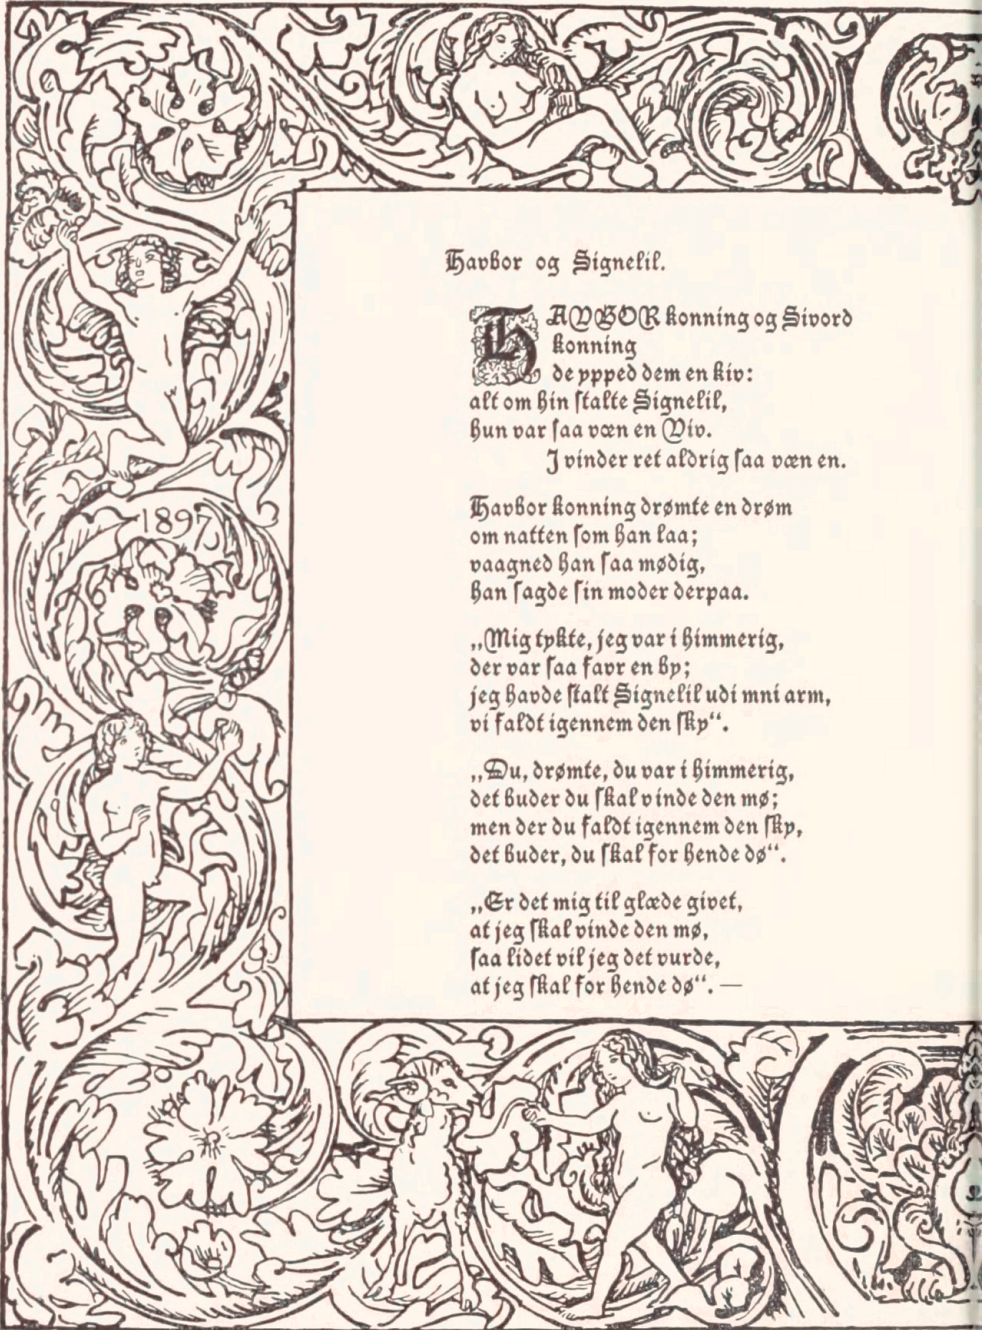 Havbor og Signelil.
HAVBOR konning og Sivord
konning
de ypped dem en kiv:
alt om hin stalte Signelil,
hun var saa væn en Viv.
I vinder ret aldrig saa væn en.
Havbor konning drømte en drøm
om natten som han laa;
vaagned han saa mødig,
han sagde sin moder derpaa.
„Mig tykte, jeg var i himmerig,
der var saa favr en by;
jeg havde stalt Signelil udi mni arm,
vi faldt igennem den sky“.
„Du, drømte, du var i himmerig,
det buder du skal vinde den mø;
men der du faldt igennem den sky,
det buder, du skal for hende dø“.
„Er det mig til glæde givet,
at jeg skal vinde den mø,
saa lidet vil jeg det vurde,
at jeg skal for hende dø“. —
1897